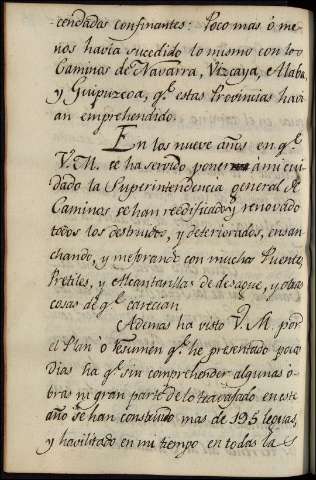 cendadas confinantes: Poco mas ó me
nos havia sucedido lo mismo con los
Caminos de Navarra, Vizcaya, Alaba,
y Guipuzcoa, q.e estas Provincias havi
an emprehendido.
En los nueve años en q.e
V. M. se ha servido poner à mi cui
dado la Superintendencia general de
Caminos se han reedificado, y renovado
todos los destruidos, y deteriorados, ensan
chando, y mejorando con muchos Puentes,
Pretiles, y Alcantarillas de desague, y otras
cosas de q.e carecian.
Ademas ha visto V. M. por
el Plan ó resumen q.e he presentado pocos
Dias ha q.e sin comprehender algunas ó-
bras ni gran parte de lo travajado en este
año se han construido mas de 195 leguas,
y havilitado en mi tiempo en todas las